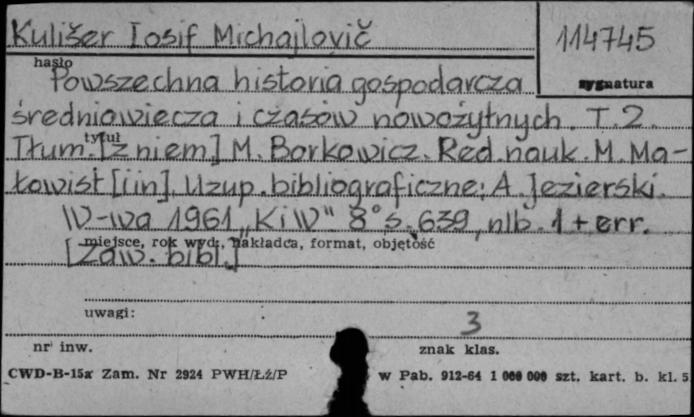 Kulišer Iosif Michajlovič
114745
hasło
sygnatura
Powszechna historia gospodarcza
średniowiecza i czasów nowożytnych. T.2.
tytuł
Tłum. [z niem] M. Borkowicz. Red. nauk. M. Ma-
łowist [iin]. Uzup. bibliograficzne: A. Jezierski.
W-wa 1961 „KiW" 8° s. 639, nlb. 1 + err.
miejsce, rok wyd., nakładca, format, objętość
[Zaw. bibl.]
uwagi:
3
nr inw.
znak klas.
CWD-B-15a Zam. Nr 2924 PWH/Łź/P
w Pab. 912-64 1 000 000 szt. kart. b. kl. 5